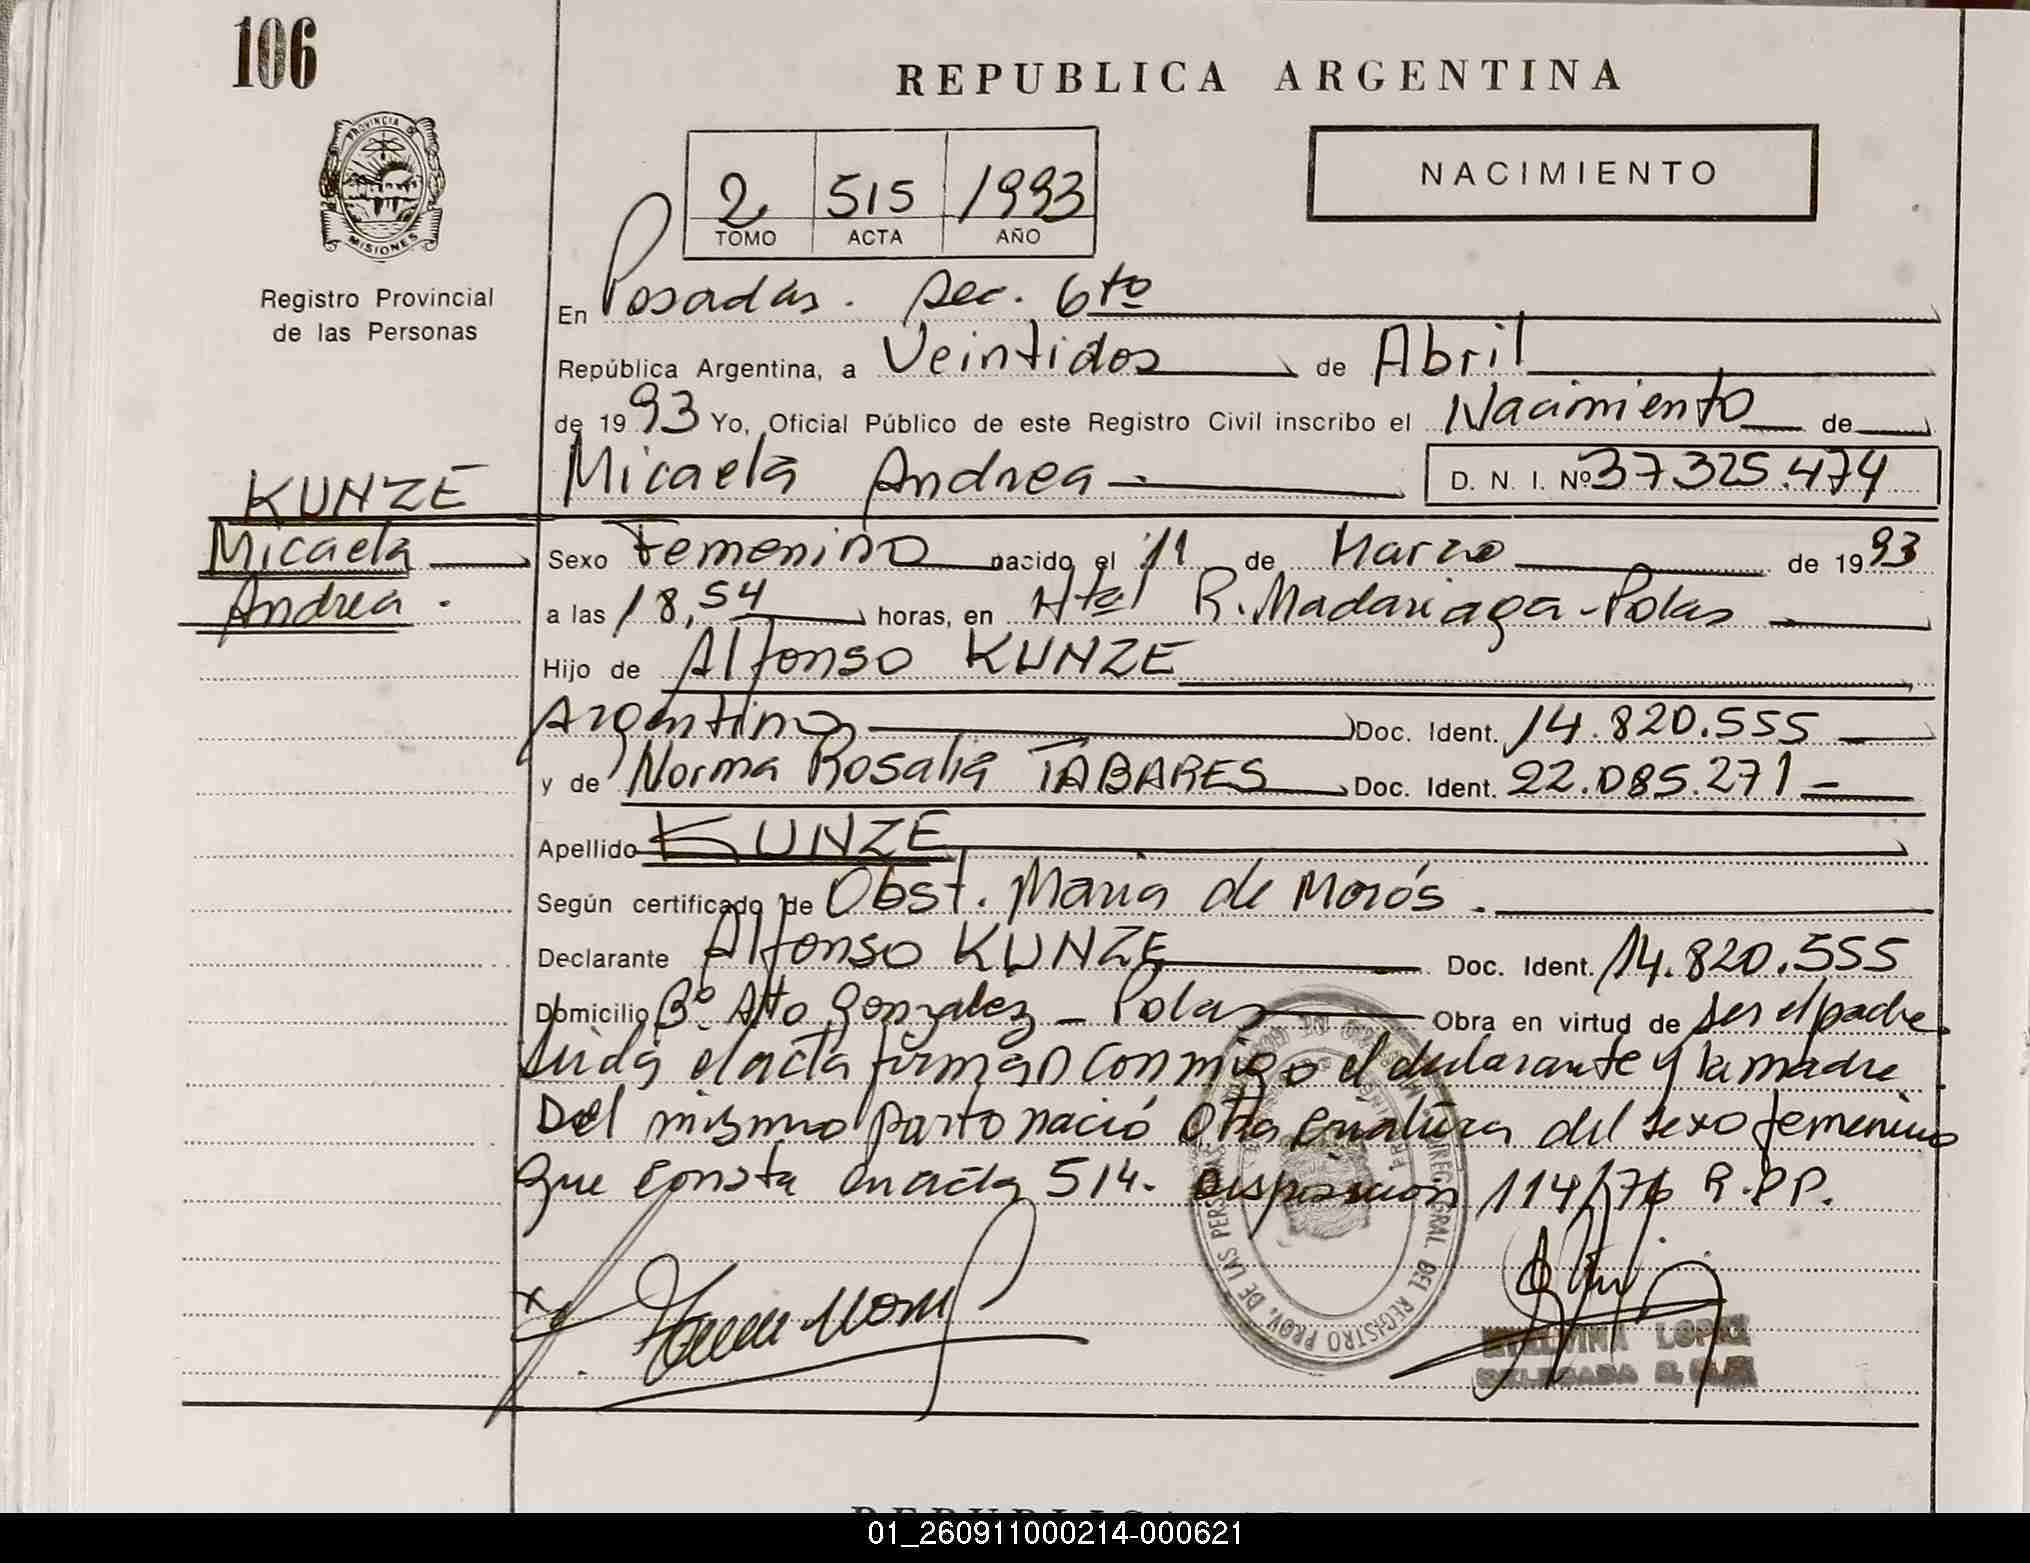 106
REPUBLICA ARGENTINA
PROVINCIA DE
MISIONES
Registro Provincial
de las Personas
2 515 1993
TOMO ACTA AÑO
NACIMIENTO
En Posadas. sec. 6to
República Argentina, a Veintidos de Abril
de 1993 Yo, Oficial Público de este Registro Civil inscribo el Nacimiento de
Micaela Andrea D. N. I. Nº 37.325.474
KUNZE
Micaela
Andrea.
Sexo Femenino nacido el 11 de Marzo de 1993
a las 18,54 horas, en Htal R. Madariaga - Pdas
Hijo de Alfonso KUNZE
Argentino Doc. Ident. 14.820.555
y de Norma Rosalia TABARES Doc. Ident. 22.085.271
Apellido KUNZE
Según certificado de Obst. Maria de Morós.
Declarante Alfonso KUNZE Doc. Ident. 14.820.555
Domicilio Bº. Alto Gonzalez - Pdas Obra en virtud de ser el padre.
Leida el acta firman conmigo el declarante y la madre
Del mismo parto nació otra criatura del sexo femenino
que consta en acta 514. Disposición 114/76 R.P.P.
DE LAS PERSONAS DIREC. GRAL. DEL REGISTRO PROV.
LOPEZ
DELEGADA
01_260911000214-000621